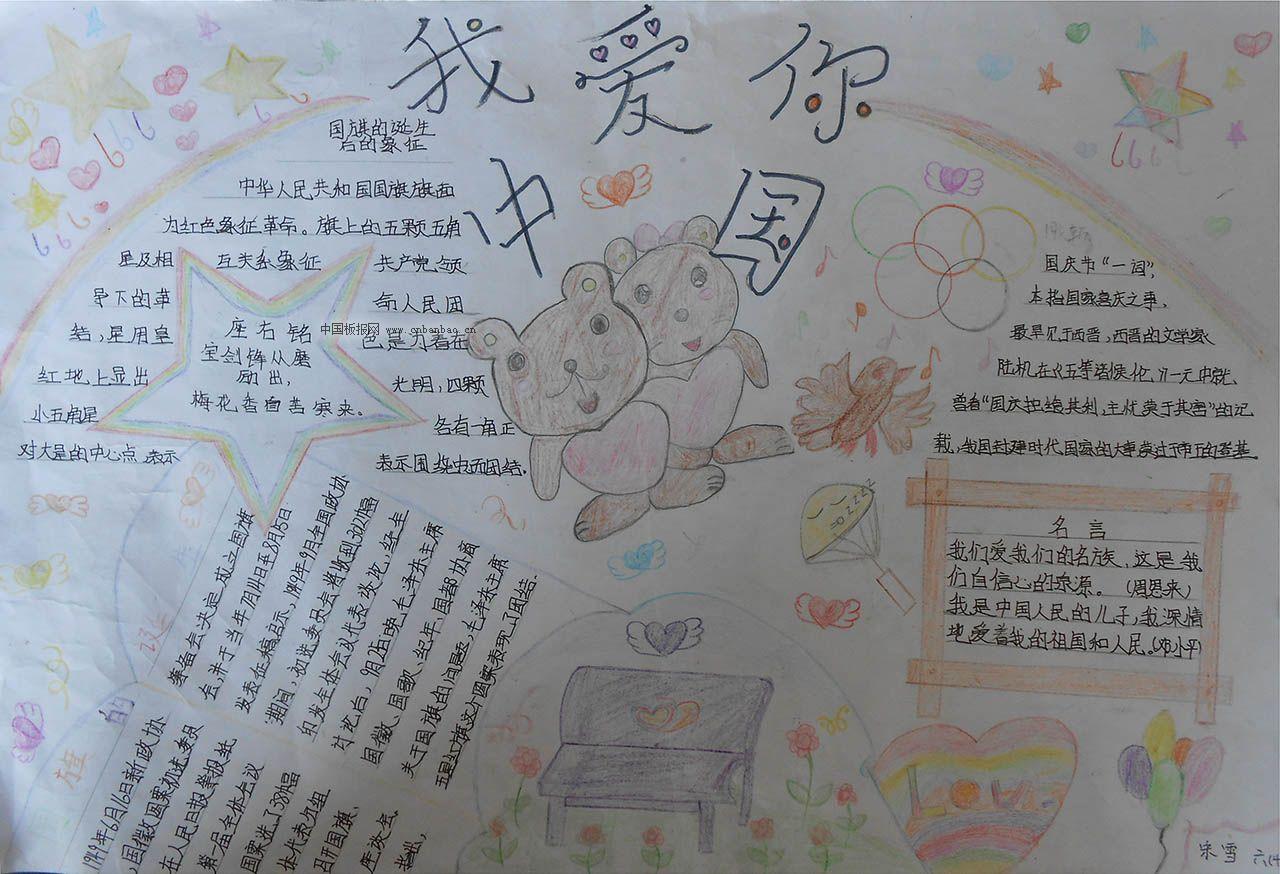 我爱你
中国
国旗的诞生
后的象征
中华人民共和国国旗旗面
为红色象征革命。旗上的五颗五角
星及相 互关系象征 共产党领
导下的革 命人民团
结,星用皇 色是为着在
红地上显出 光明,四颗
小五角星 各有一角正
对大星的中心点,表示
表示围绕中而团结。
座右铭
宝剑锋从磨
励出,
梅花香自苦寒来。
中国板报网 www.cnbanbao.cn
国庆节“一词”,
本指国家喜庆之事,
最早见于西晋,西晋的文学家
陆机在《五等诸侯论》一
曾有“国庆 其利,主忧莫于其害”的记
载,我国封建时代国家的大事
名言
我们爱我们的名族,这是我
们自信心的泉源。(周恩来)
我是中国人民的儿子,我深情
地爱着我的祖国和人民。(邓小平)
筹备会决定,成立国旗
会,并于当年7月14日至8月15日
发表征稿启示,1949年9月全国政协
期间,初选委员会当收到3024幅
印发全体会议代表
讨论后,9月25日晚毛泽东主席
国徽、国歌、纪年、国都协商
关于国旗的问题,毛泽东主席
五星红旗这个图案表现了团结。
的
1949年6月16日新政协
国徽图案初选委员
在人民日报等报纸
第一届全体会议
国案选了38幅
体代表分组
召开国旗、
座次气
666
666
zzzz
宋雪